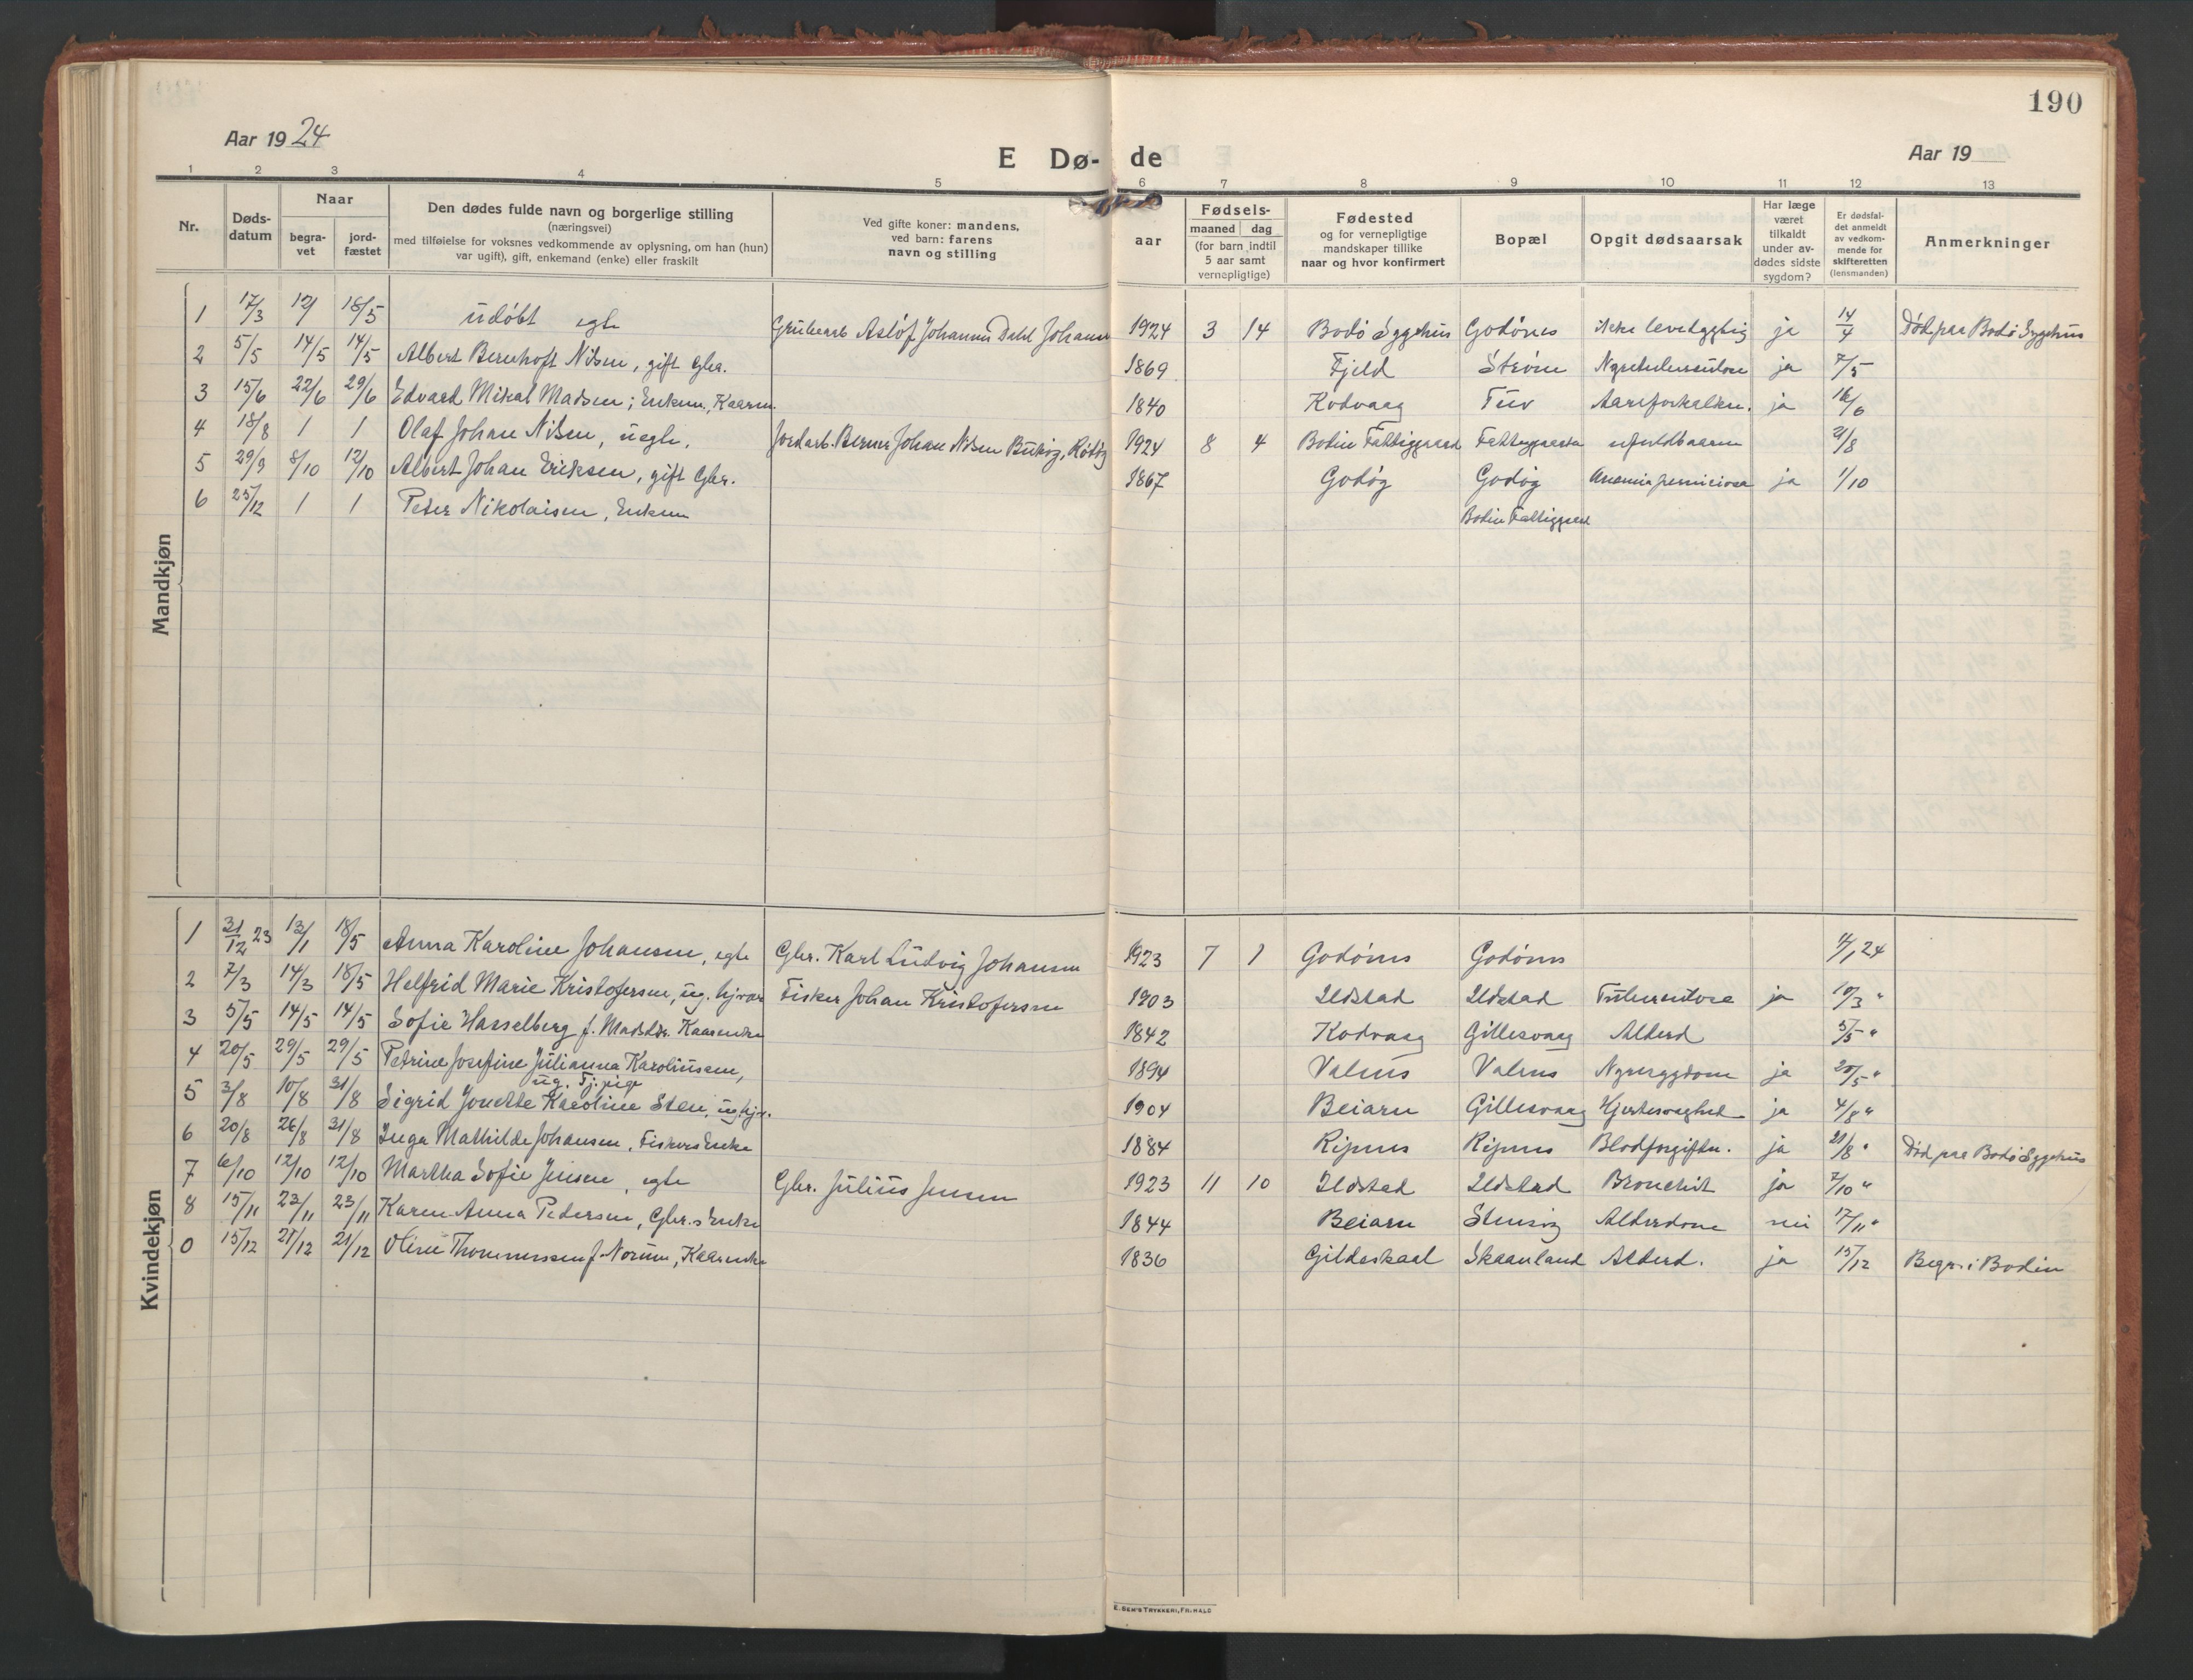 190
Aar 19 24
E Dø- de
Aar 19
1 2 3 4 5 6 7 8 9 10 11 12 13
Nr.
Døds-
datum
Naar
begra-
vet
jord-
fæstet
Den dødes fulde navn og borgerlige stilling
(næringsvei)
med tilføielse for voksnes vedkommende av oplysning, om han (hun)
var ugift), gift, enkemand (enke) eller fraskilt
Ved gifte koner: mandens,
ved barn: farens
navn og stilling
Fødsels-
aar
maaned dag
(for barn indtil
5 aar samt
vernepligtige)
Fødested
og for vernepligtige
mandskaper tillike
naar og hvor konfirmert
Bopæl
Opgit dødsaarsak
Har læge
været
tilkaldt
under av-
dødes sidste
sygdom?
Er dødsfal-
det anmeldt
av vedkom-
mende for
skifteretten
(lensmanden)
Anmerkninger
Mandkjøn
1 17/3 18/5 udøbt egte Johannes Dahl 1924 3 14 Bodø Sygehus Godønes ikke levedygtig ja 14/4 Død paa Bodø Sygehus
2 5/5 14/5 14/5 Albert Bernhoft Nilsen, gift Gbr. 1869 Fjeld Strøm ja 7/5
3 15/6 22/6 29/6 Edvard Mikal Madsen; Enkem., Kaarm. 1840 Kodvaag Tuv Aareforkalkn. ja 16/6
4 18/8 1 1 Olaf Johan Nilsen, uegte. Jordarb. Johan Nilsen 1924 8 4 Bodin Fattiggaard 21/8
5 29/9 8/10 12/10 Albert Johan Eriksen, gift Gbr. 1867 Godøy Godøy Anemia perniciosa ja 1/10
6 25/12 1 1 Peter Nikolaisen, Enkem Bodin Fattiggaard
Kvindekjøn
1 31/12 23 13/1 18/5 Anna Karoline Johansen, egte Gbr. Karl Ludvig Johansen 1923 7 1 Godønes Godønes 24
2 7/3 14/3 18/5 Helfrid Marie Kristofersen, ug. hjvær Fisker Johan Kristofersen 1903 Ildstad Ildstad Tuberculose ja 10/3 "
3 5/5 14/5 14/5 Sofie Hasselberg f. Madsdr. Kaarenke 1842 Kodvaag Gillesvaag Alderd 5/5 "
4 20/5 29/5 29/5 Petrine Josefine Julianna Karoliussen,
ug. Tj.pige 1894 Valnes Valnes Nyresygdom ja "
5 3/8 10/8 31/8 Sigrid Jonette Karoline Sten, ug. hjv. 1904 Beiarn Gillesvaag Hjertesvaghed ja 4/8 "
6 20/8 26/8 31/8 Inga Mathilde Johansen, Fiskers Enke 1884 Ripnes Ripnes Blodforgiftn. ja 21/8 " Død paa Bodø Sygehus
7 6/10 12/10 12/10 Martha Sofie Jensen, egte Gbr. Julius Jensen 1923 11 10 Ildstad Ildstad Bronchit ja 7/10 "
8 15/11 23/11 23/11 Karen Anna Pedersen, Gbr.s Enke 1844 Beiarn Alderdom nei 17/11 "
0 15/12 21/12 21/12 Oline Thommessen f. Norum, Kaarenke 1836 Gildeskaal Skaanland Alderd. ja 15/12 Begr. i Bodin